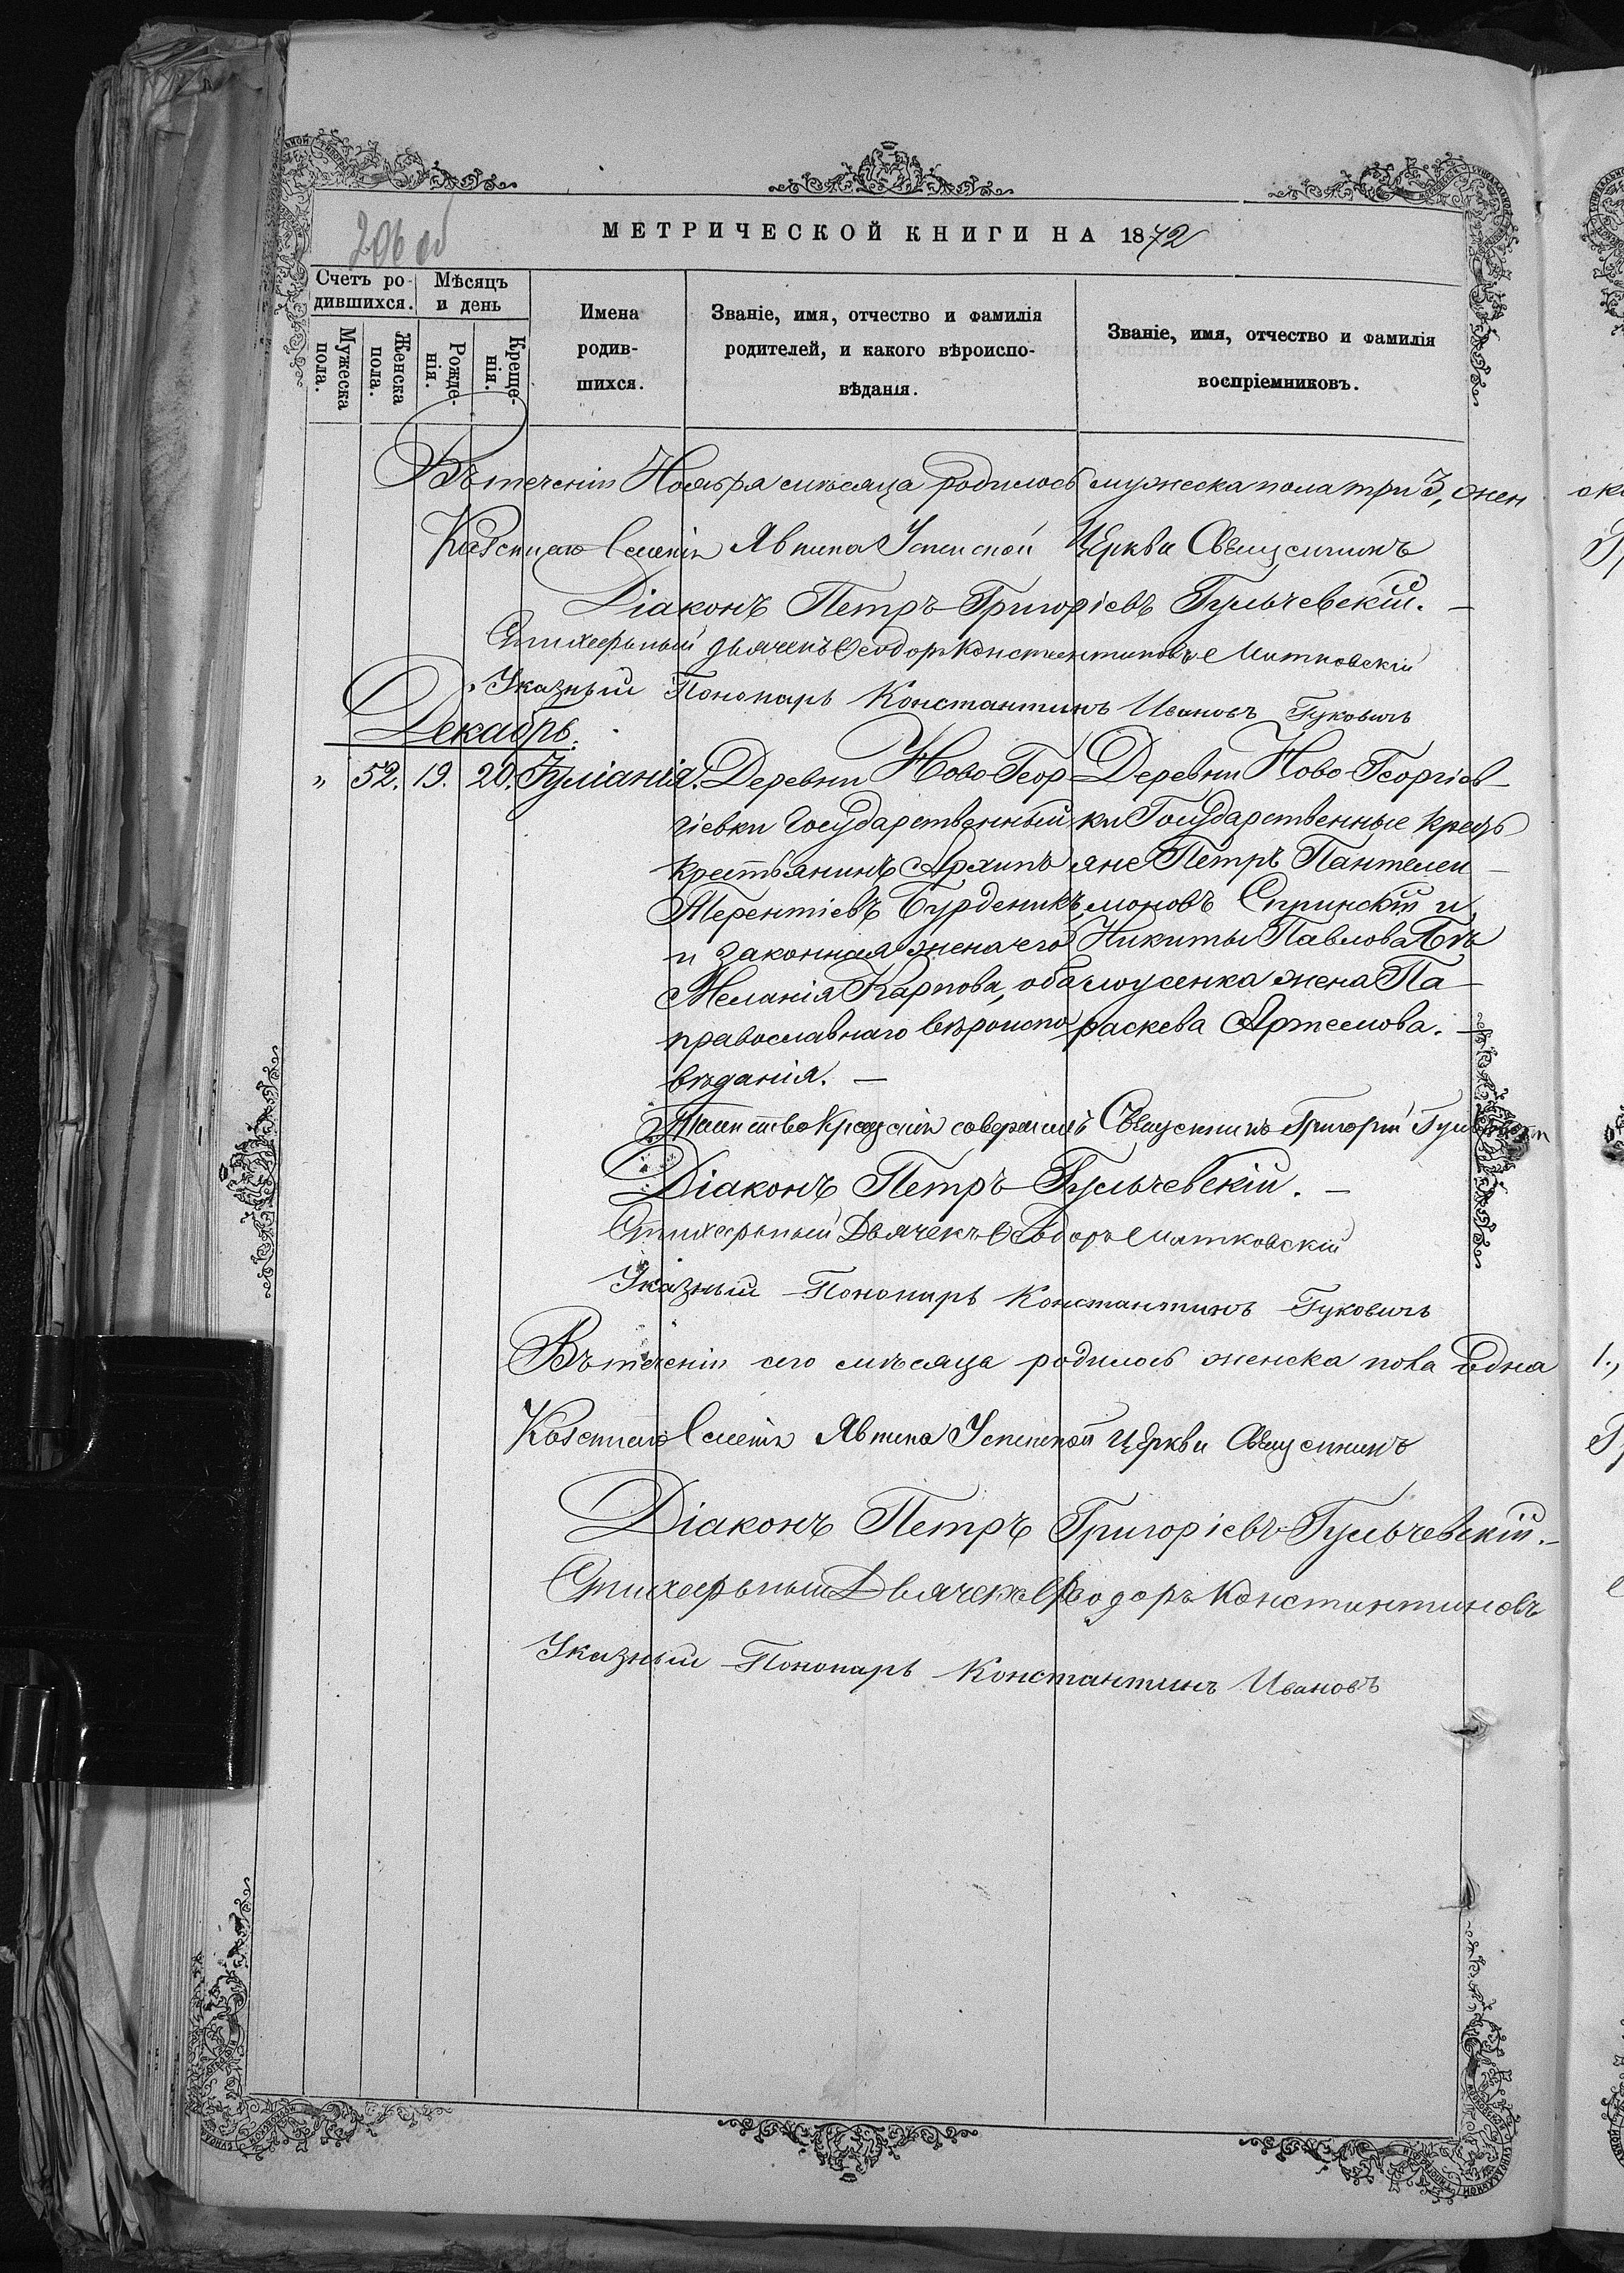 206 об
МЕТРИЧЕСКОЙ КНИГИ НА 1872
Счетъ родившихся.
Мѣсяцъ и день
Мужеска пола.
Женска пола.
Рожденія.
Крещенія.
Имена родившихся.
Званіе, имя, отчество и фамилія родителей, и какого вѣроисповѣданія.
Званіе, имя, отчество и фамилія воспріемниковъ.
Въ теченіи Ноября мѣсяца родилось мужеска пола три 3, жен
Явкина Успенской Церкви Священникъ
Діаконъ Петръ Григоріевъ Гульчевскій. —
Стихарный Дьячекъ Ѳеодоръ Константиновъ Мотковскій
Указный Пономарь Константинъ Ивановъ Гуковичъ
Декабрь.
„ 52. 19. 20. Іуліанія.
Деревни Ново-Геор-
гіевки Государственный
крестьянинъ Архипъ
Терентіевъ Бурденикъ
и законная жена его
Меланія Карпова, оба
православнаго вѣроиспо
вѣданія. —
Деревни Ново-Георгіев-
ки Государственные кресть
яне Петръ Пантелеи-
моновъ и
Никиты Павлова
жена Па-
раскева Артемова. —
Таинство Крещенія совершилъ Священникъ Григорій
Діаконъ Петръ Гульчевскій. —
Стихарный Дьячекъ Ѳеодоръ Мотковскій
Указный Пономарь Константинъ Гуковичъ
Въ теченіи сего мѣсяца родилось женска пола една 1.,
Явкина Успенской Церкви Священникъ
Діаконъ Петръ Григоріевъ Гульчевскій. —
Стихарный Дьячекъ Ѳеодоръ Константиновъ
Указный Пономарь Константинъ Ивановъ